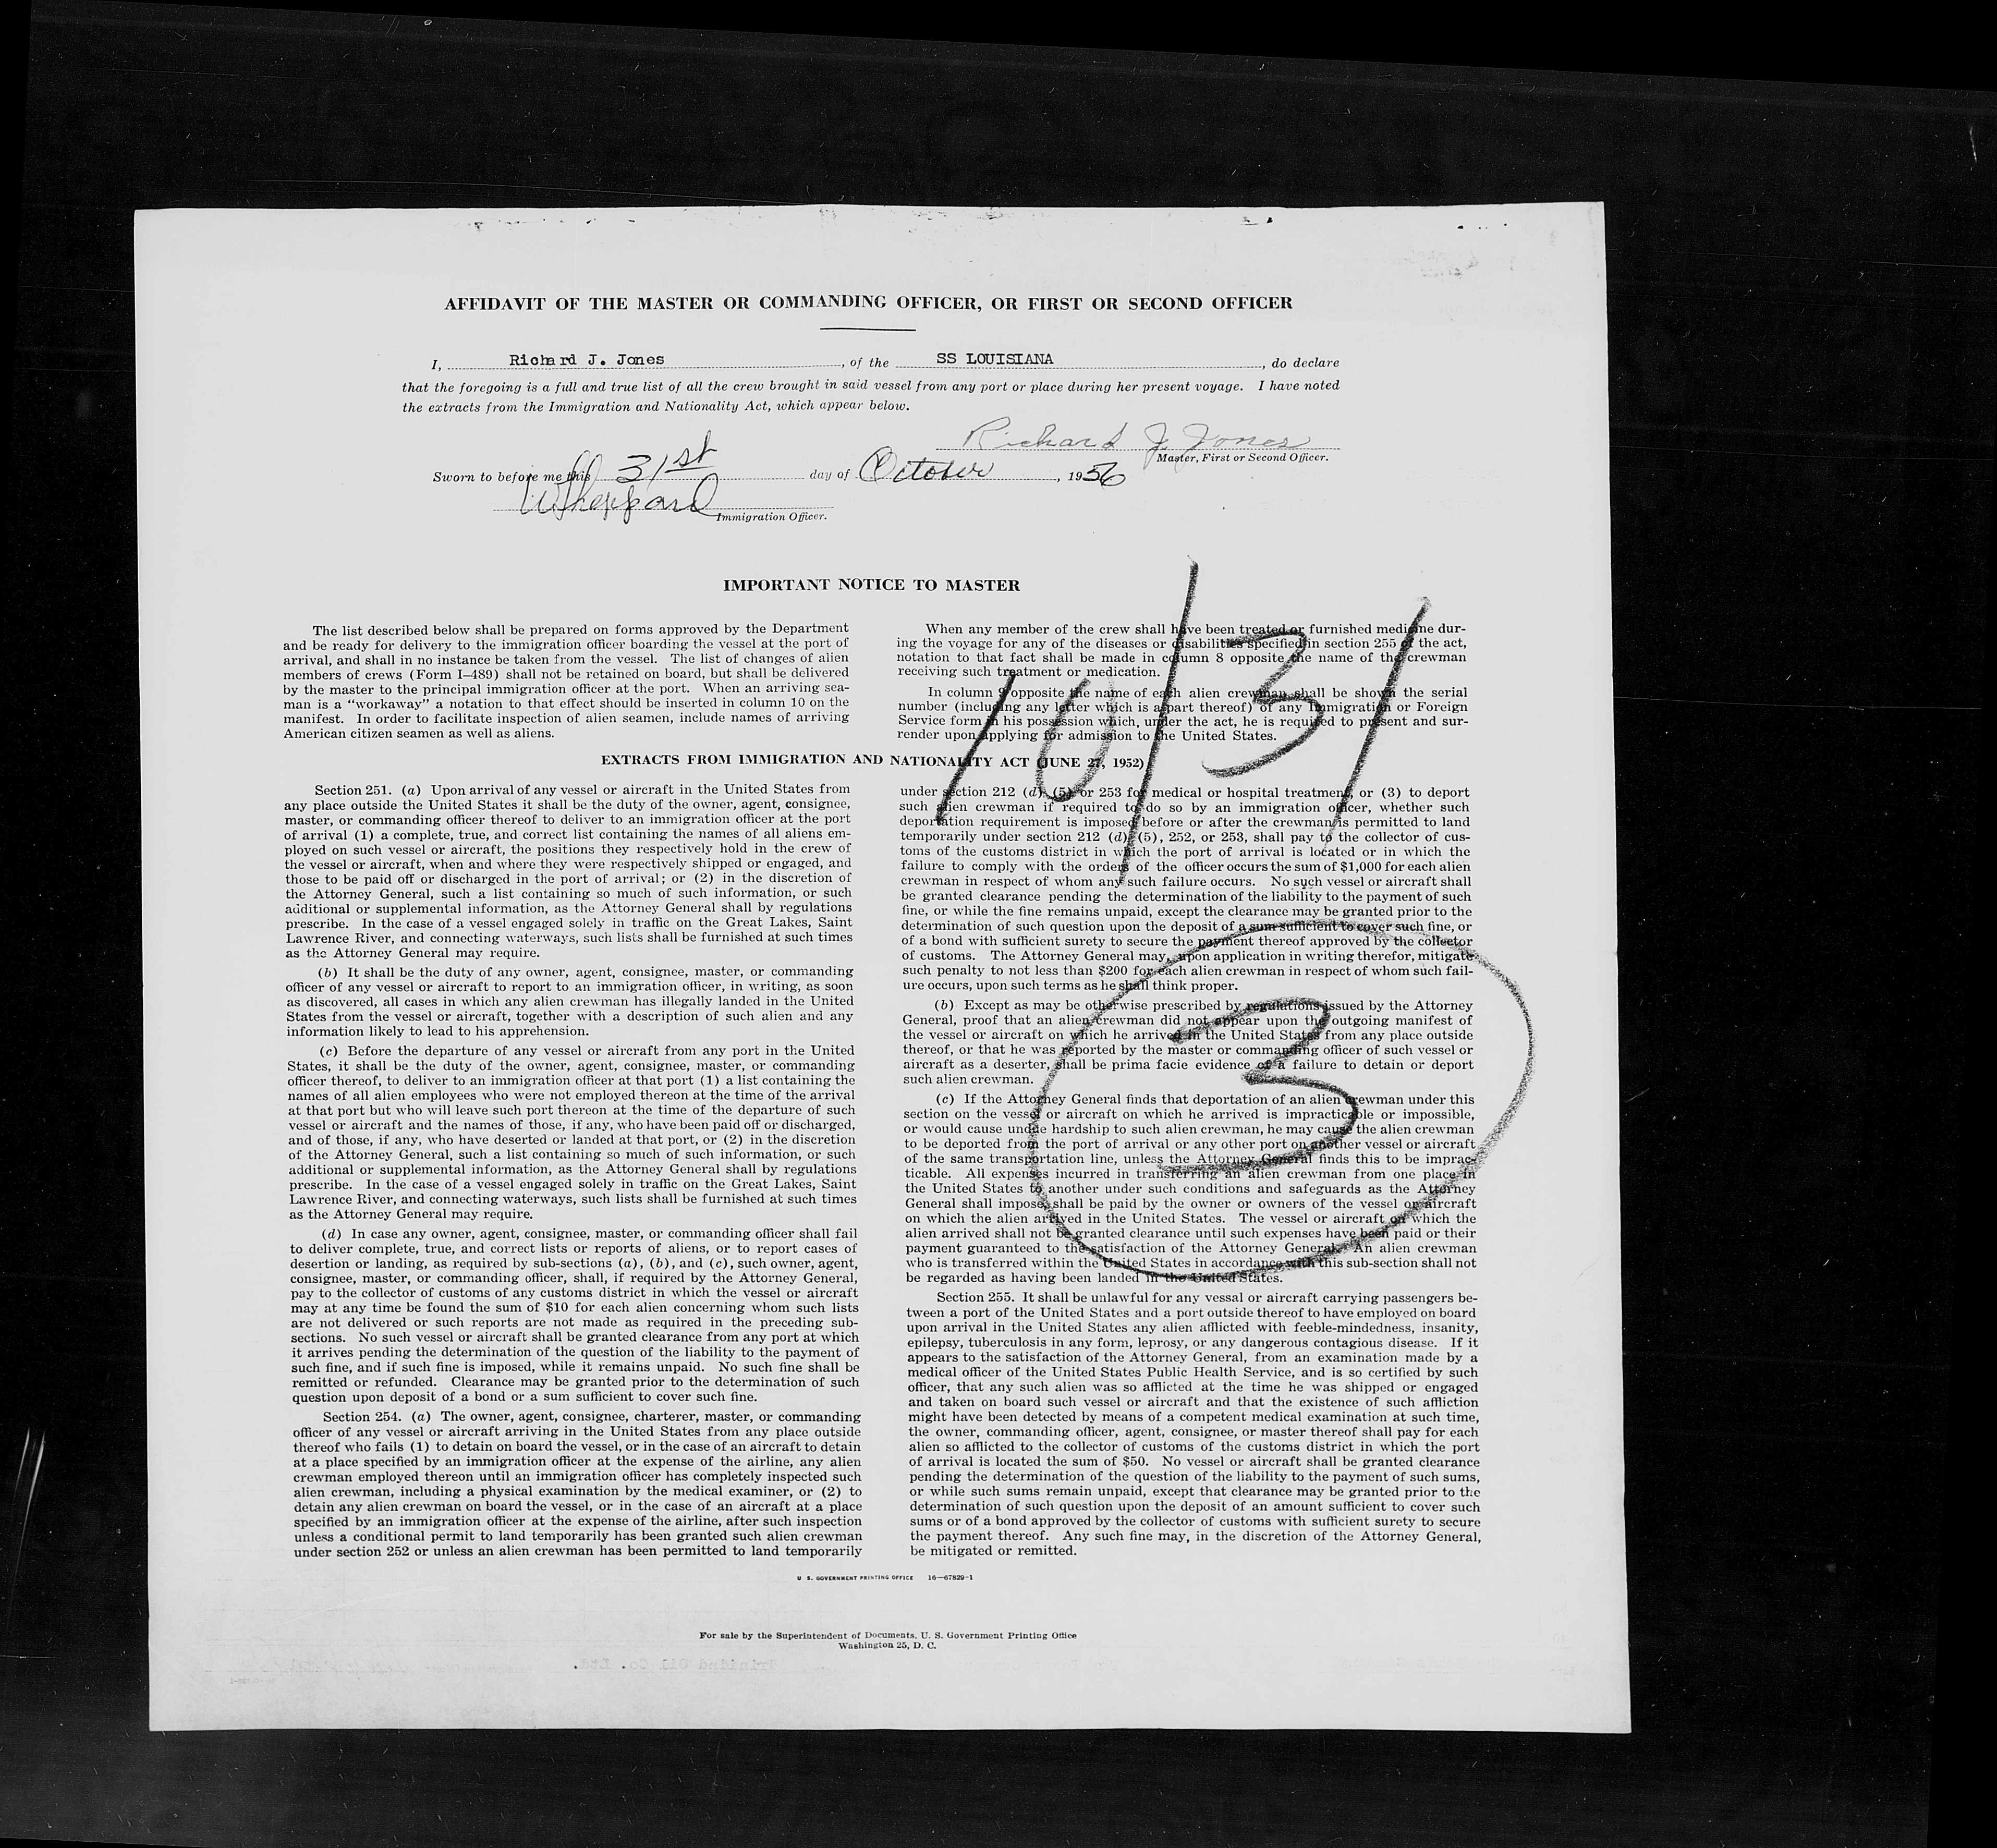 AFFIDAVIT OF THE MASTER OR COMMANDING OFFICER, OR FIRST OR SECOND OFFICER
I, Richard J. Jones, of the SS LOUISIANA, do declare
that the foregoing is a full and true list of all the crew brought in said vessel from any port or place during her present voyage. I have noted
the extracts from the Immigration and Nationality Act, which appear below.
Richard J. Jones
Master, First or Second Officer.
Sworn to before me this 31st day of October, 1956
W Sheppard
Immigration Officer.
IMPORTANT NOTICE TO MASTER
The list described below shall be prepared on forms approved by the Department
and be ready for delivery to the immigration officer boarding the vessel at the port of
arrival, and shall in no instance be taken from the vessel. The list of changes of alien
members of crews (Form I–489) shall not be retained on board, but shall be delivered
by the master to the principal immigration officer at the port. When an arriving sea-
man is a “workaway” a notation to that effect should be inserted in column 10 on the
manifest. In order to facilitate inspection of alien seamen, include names of arriving
American citizen seamen as well as aliens.
When any member of the crew shall have been treated or furnished medicine dur-
ing the voyage for any of the diseases or disabilities specified in section 255 of the act,
notation to that fact shall be made in column 8 opposite the name of the crewman
receiving such treatment or medication.
In column 9 opposite the name of each alien crewman shall be shown the serial
number (including any letter which is a part thereof) of any Immigration or Foreign
Service form in his possession which, under the act, he is required to present and sur-
render upon applying for admission to the United States.
10/31
EXTRACTS FROM IMMIGRATION AND NATIONALITY ACT (JUNE 27, 1952)
Section 251. (a) Upon arrival of any vessel or aircraft in the United States from
any place outside the United States it shall be the duty of the owner, agent, consignee,
master, or commanding officer thereof to deliver to an immigration officer at the port
of arrival (1) a complete, true, and correct list containing the names of all aliens em-
ployed on such vessel or aircraft, the positions they respectively hold in the crew of
the vessel or aircraft, when and where they were respectively shipped or engaged, and
those to be paid off or discharged in the port of arrival; or (2) in the discretion of
the Attorney General, such a list containing so much of such information, or such
additional or supplemental information, as the Attorney General shall by regulations
prescribe. In the case of a vessel engaged solely in traffic on the Great Lakes, Saint
Lawrence River, and connecting waterways, such lists shall be furnished at such times
as the Attorney General may require.
(b) It shall be the duty of any owner, agent, consignee, master, or commanding
officer of any vessel or aircraft to report to an immigration officer, in writing, as soon
as discovered, all cases in which any alien crewman has illegally landed in the United
States from the vessel or aircraft, together with a description of such alien and any
information likely to lead to his apprehension.
(c) Before the departure of any vessel or aircraft from any port in the United
States, it shall be the duty of the owner, agent, consignee, master, or commanding
officer thereof, to deliver to an immigration officer at that port (1) a list containing the
names of all alien employees who were not employed thereon at the time of the arrival
at that port but who will leave such port thereon at the time of the departure of such
vessel or aircraft and the names of those, if any, who have been paid off or discharged,
and of those, if any, who have deserted or landed at that port, or (2) in the discretion
of the Attorney General, such a list containing so much of such information, or such
additional or supplemental information, as the Attorney General shall by regulations
prescribe. In the case of a vessel engaged solely in traffic on the Great Lakes, Saint
Lawrence River, and connecting waterways, such lists shall be furnished at such times
as the Attorney General may require.
(d) In case any owner, agent, consignee, master, or commanding officer shall fail
to deliver complete, true, and correct lists or reports of aliens, or to report cases of
desertion or landing, as required by sub-sections (a), (b), and (c), such owner, agent,
consignee, master, or commanding officer, shall, if required by the Attorney General,
pay to the collector of customs of any customs district in which the vessel or aircraft
may at any time be found the sum of $10 for each alien concerning whom such lists
are not delivered or such reports are not made as required in the preceding sub-
sections. No such vessel or aircraft shall be granted clearance from any port at which
it arrives pending the determination of the question of the liability to the payment of
such fine, and if such fine is imposed, while it remains unpaid. No such fine shall be
remitted or refunded. Clearance may be granted prior to the determination of such
question upon deposit of a bond or a sum sufficient to cover such fine.
Section 254. (a) The owner, agent, consignee, charterer, master, or commanding
officer of any vessel or aircraft arriving in the United States from any place outside
thereof who fails (1) to detain on board the vessel, or in the case of an aircraft to detain
at a place specified by an immigration officer at the expense of the airline, any alien
crewman employed thereon until an immigration officer has completely inspected such
alien crewman, including a physical examination by the medical examiner, or (2) to
detain any alien crewman on board the vessel, or in the case of an aircraft at a place
specified by an immigration officer at the expense of the airline, after such inspection
unless a conditional permit to land temporarily has been granted such alien crewman
under section 252 or unless an alien crewman has been permitted to land temporarily
under section 212 (d), (5) or 253 for medical or hospital treatment, or (3) to deport
such alien crewman if required to do so by an immigration officer, whether such
deportation requirement is imposed before or after the crewman is permitted to land
temporarily under section 212 (d) (5), 252, or 253, shall pay to the collector of cus-
toms of the customs district in which the port of arrival is located or in which the
failure to comply with the orders of the officer occurs the sum of $1,000 for each alien
crewman in respect of whom any such failure occurs. No such vessel or aircraft shall
be granted clearance pending the determination of the liability to the payment of such
fine, or while the fine remains unpaid, except the clearance may be granted prior to the
determination of such question upon the deposit of a sum sufficient to cover such fine, or
of a bond with sufficient surety to secure the payment thereof approved by the collector
of customs. The Attorney General may, upon application in writing therefor, mitigate
such penalty to not less than $200 for each alien crewman in respect of whom such fail-
ure occurs, upon such terms as he shall think proper.
(b) Except as may be otherwise prescribed by regulations issued by the Attorney
General, proof that an alien crewman did not appear upon the outgoing manifest of
the vessel or aircraft on which he arrived in the United States from any place outside
thereof, or that he was reported by the master or commanding officer of such vessel or
aircraft as a deserter, shall be prima facie evidence of a failure to detain or deport
such alien crewman.
3
(c) If the Attorney General finds that deportation of an alien crewman under this
section on the vessel or aircraft on which he arrived is impracticable or impossible,
or would cause undue hardship to such alien crewman, he may cause the alien crewman
to be deported from the port of arrival or any other port on another vessel or aircraft
of the same transportation line, unless the Attorney General finds this to be imprac-
ticable. All expenses incurred in transferring an alien crewman from one place in
the United States to another under such conditions and safeguards as the Attorney
General shall impose, shall be paid by the owner or owners of the vessel or aircraft
on which the alien arrived in the United States. The vessel or aircraft on which the
alien arrived shall not be granted clearance until such expenses have been paid or their
payment guaranteed to the satisfaction of the Attorney General. An alien crewman
who is transferred within the United States in accordance with this sub-section shall not
be regarded as having been landed in the United States.
Section 255. It shall be unlawful for any vessal or aircraft carrying passengers be-
tween a port of the United States and a port outside thereof to have employed on board
upon arrival in the United States any alien afflicted with feeble-mindedness, insanity,
epilepsy, tuberculosis in any form, leprosy, or any dangerous contagious disease. If it
appears to the satisfaction of the Attorney General, from an examination made by a
medical officer of the United States Public Health Service, and is so certified by such
officer, that any such alien was so afflicted at the time he was shipped or engaged
and taken on board such vessel or aircraft and that the existence of such affliction
might have been detected by means of a competent medical examination at such time,
the owner, commanding officer, agent, consignee, or master thereof shall pay for each
alien so afflicted to the collector of customs of the customs district in which the port
of arrival is located the sum of $50. No vessel or aircraft shall be granted clearance
pending the determination of the question of the liability to the payment of such sums,
or while such sums remain unpaid, except that clearance may be granted prior to the
determination of such question upon the deposit of an amount sufficient to cover such
sums or of a bond approved by the collector of customs with sufficient surety to secure
the payment thereof. Any such fine may, in the discretion of the Attorney General,
be mitigated or remitted.
U. S. GOVERNMENT PRINTING OFFICE 16—67829-1
For sale by the Superintendent of Documents, U. S. Government Printing Office
Washington 25, D. C.